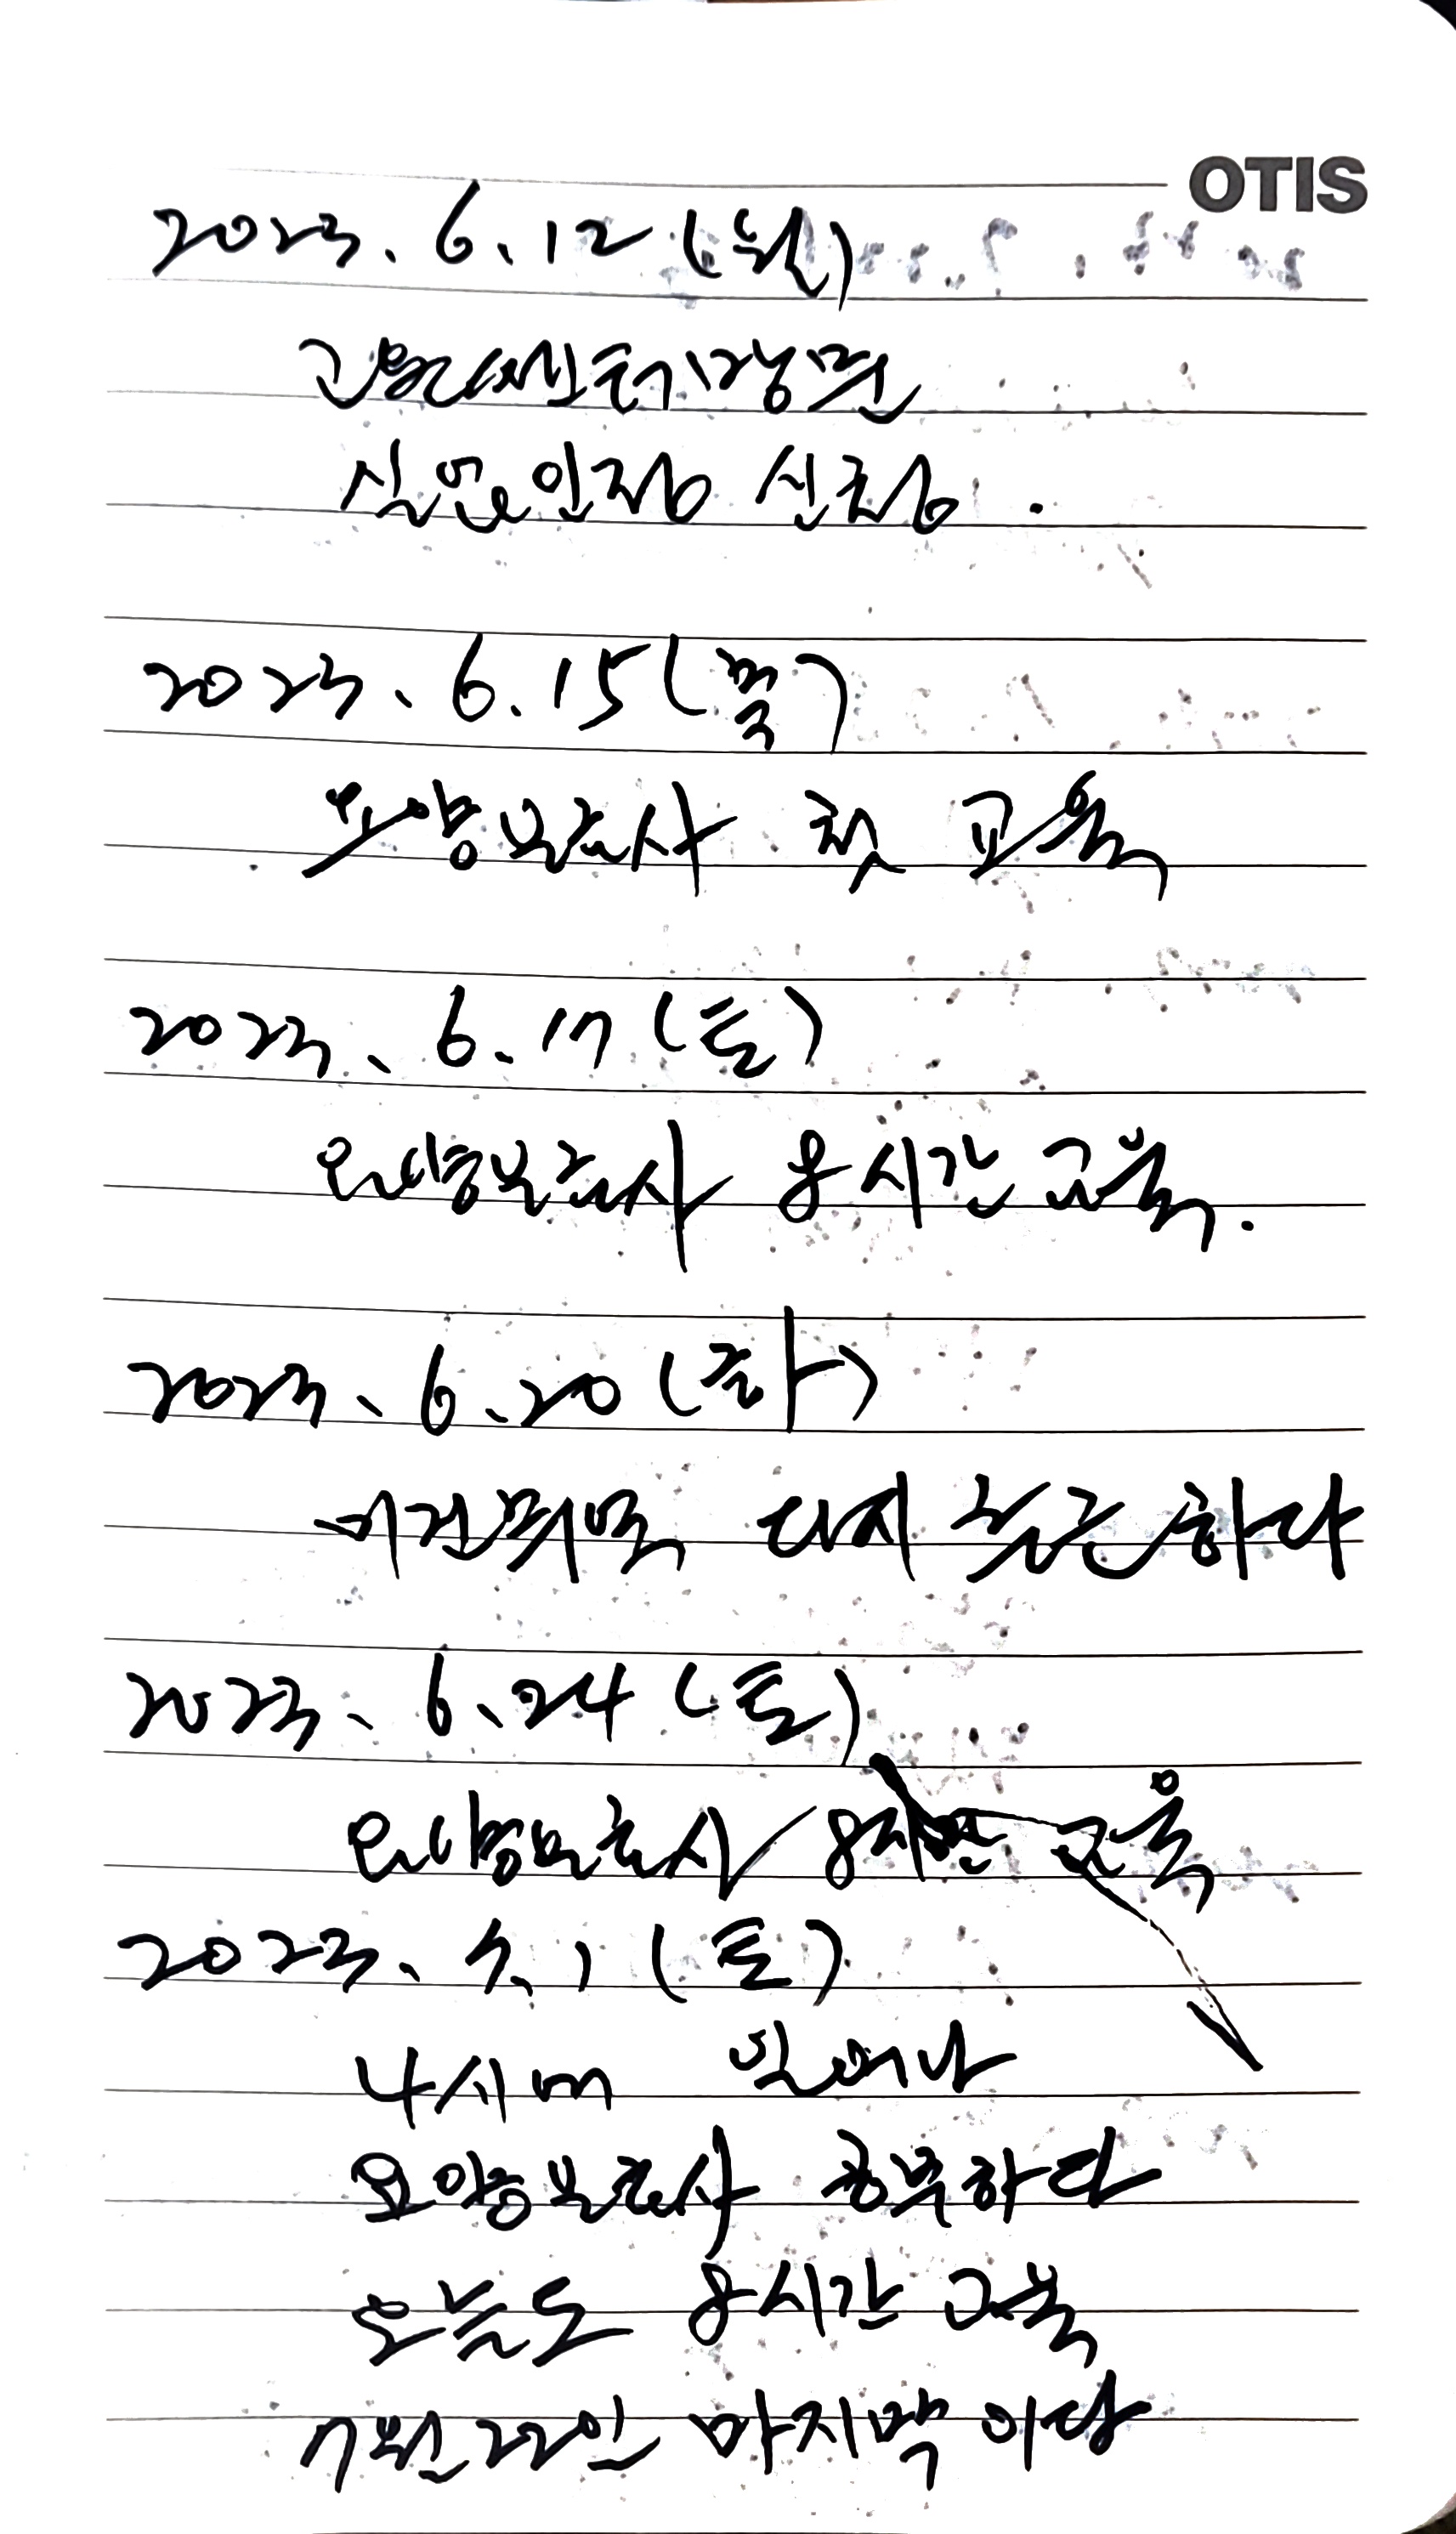 OTIS
2023. 6. 12 (월)
고용센터 방문
실업인정 신청.
2023. 6. 15 (목)
요양보호사 첫 교육
2023. 6. 17 (토)
요양보호사 8시간 교육.
2023. 6. 20 (화)
다시 출근하다
2023. 6. 24 (토)
요양보호사 8시간 교육
2023. 7. 1 (토)
4시에 일어나
요양보호사 공부하다
오늘도 8시간 교육
7월 22일 마지막이다